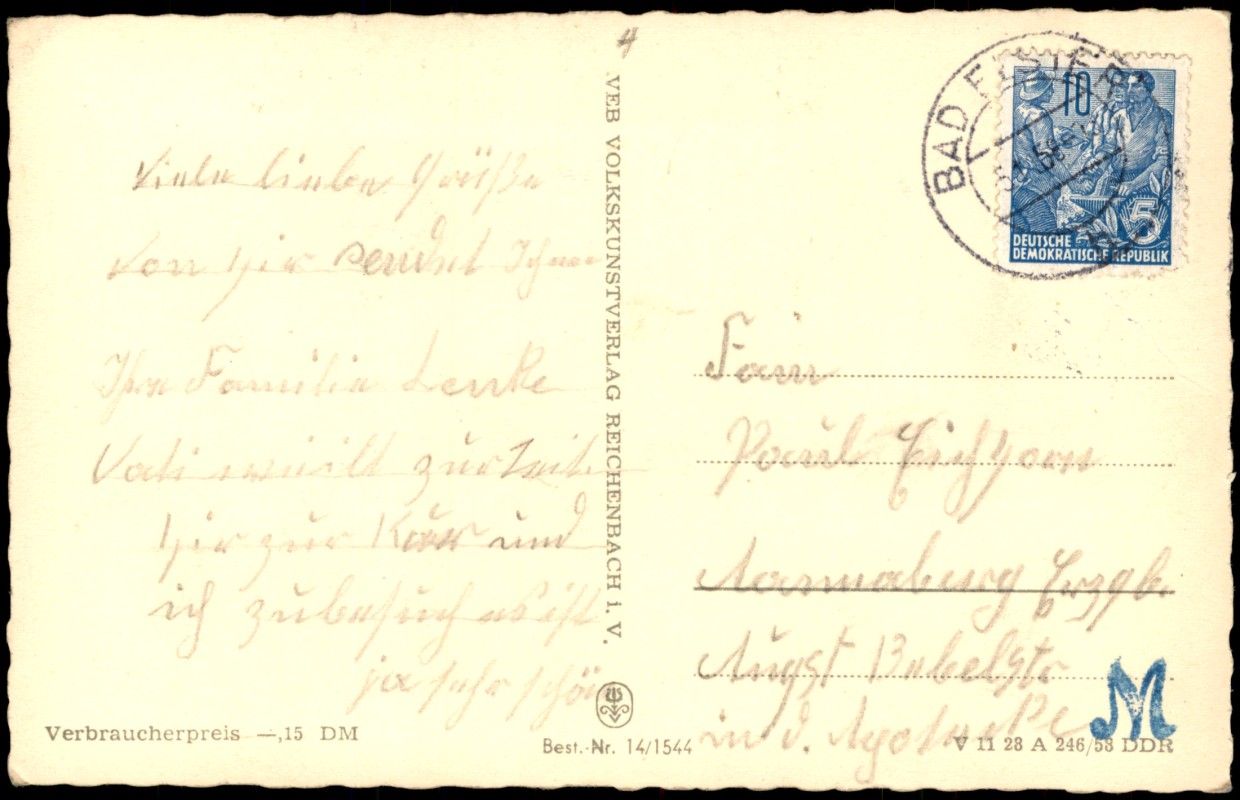 4
Viele liebe Grüße
von hier sendet Ihnen
Ihre Familie Lenke
Vati weilt zur Zeit
hir zur Kur und
ich zubesuch es ist
ja sehr schön
Verbraucherpreis —,15 DM
VEB VOLKSKUNSTVERLAG REICHENBACH i. V.
Best.-Nr. 14/1544
BAD ELSTER
58
10
5
DEUTSCHE
DEMOKRATISCHE REPUBLIK
Fam
Paul Eichhorn
Annaburg Erzgb.
Augst Bebelstr
in d. Apotheke
M
V 11 28 A 246/58 DDR